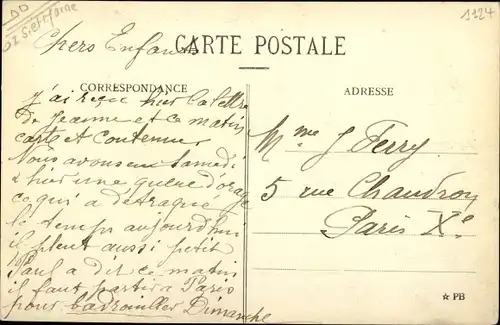 1124
CARTE POSTALE
CORRESPONDANCE
ADRESSE
Chers Enfants
J'ai reçu hier la lettre
de Jeanne et ce matin
carte et contenu
Nous avons eu samedi
& hier une d'orage
ce qui a détraqué
le temps aujourd'hui
il pleut aussi petit
Paul a dit ce matin
il faut partir a Paris
pour Dimanche
Mme J Ferry
5 rue Chaudron
Paris Xe
☆ PB